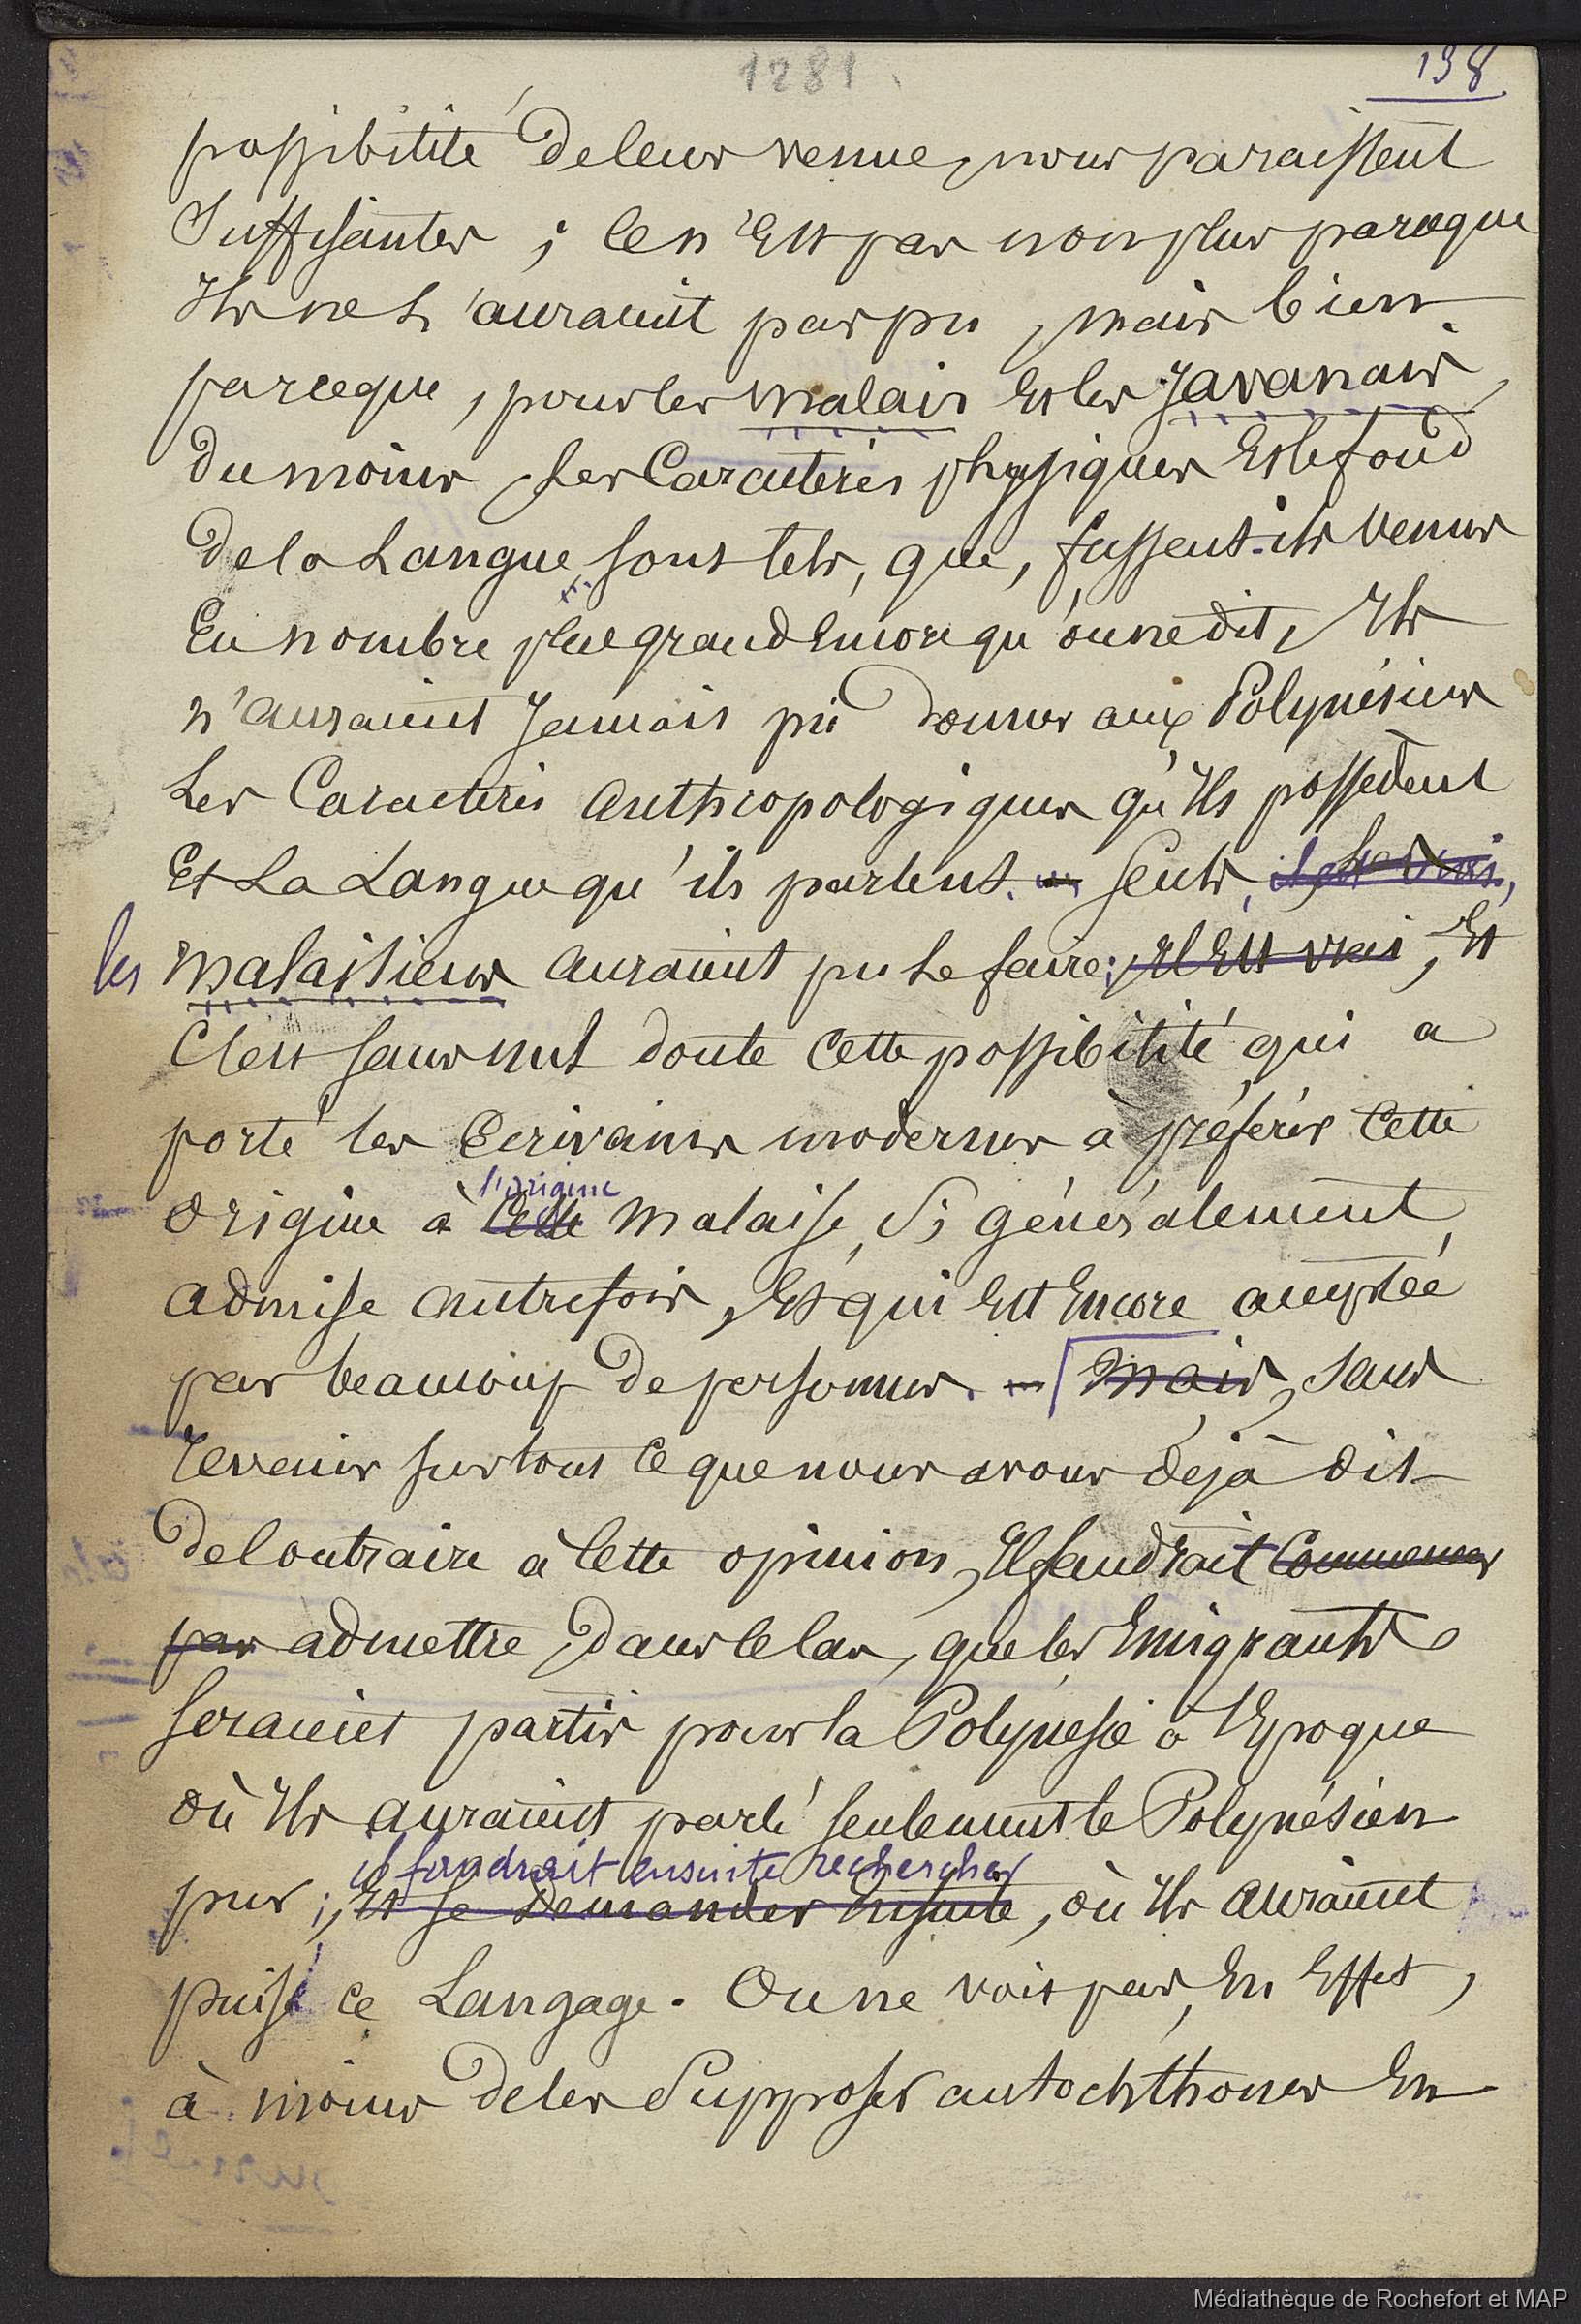 1281
138
possibilité de leur venue, nous paraissent
Suffisantes ; ce n'Est pas non plus parceque
Ils ne L'auraient pas pu, mais bien
parceque, pour les Malais Et les Javanais,
du moins, les Caractères physiques Et le fond
de la Langue sont tels, que, fussent-ils venus
En nombre plus grand Encore qu'on ne dit, Ils
n'auraient Jamais pu donner aux Polynésiens
Les Caractères Anthropologiques qu'Ils possèdent
Et La Langue qu'ils parlent. Seuls, il est vrai,
les Malaisiens auraient pu Le faire; Il Est vrai, Et
C'est sans nul doute cette possibilité qui a
porté les Ecrivains modernes à préférer cette
l'origine
origine à Celle Malaise, Si généralement
admise autrefois, Et qui Est Encore acceptée
par beaucoup de personnes. — Mais, sans
revenir sur tout ce que nous avons déjà dit
de Contraire à Cette opinion, Il faudrait Commencer
par admettre, dans ce Cas, que les Emigrants
seraient partis pour la Polynésie à l'Epoque
où Ils auraient parlé seulement le Polynésien
il faudrait ensuite rechercher
pur ; Et se Demander Ensuite, où Ils auraient
puisé ce Langage. On ne voit pas, En Effet,
à moins de les Supposer autochthones En
Médiathèque de Rochefort et MAP